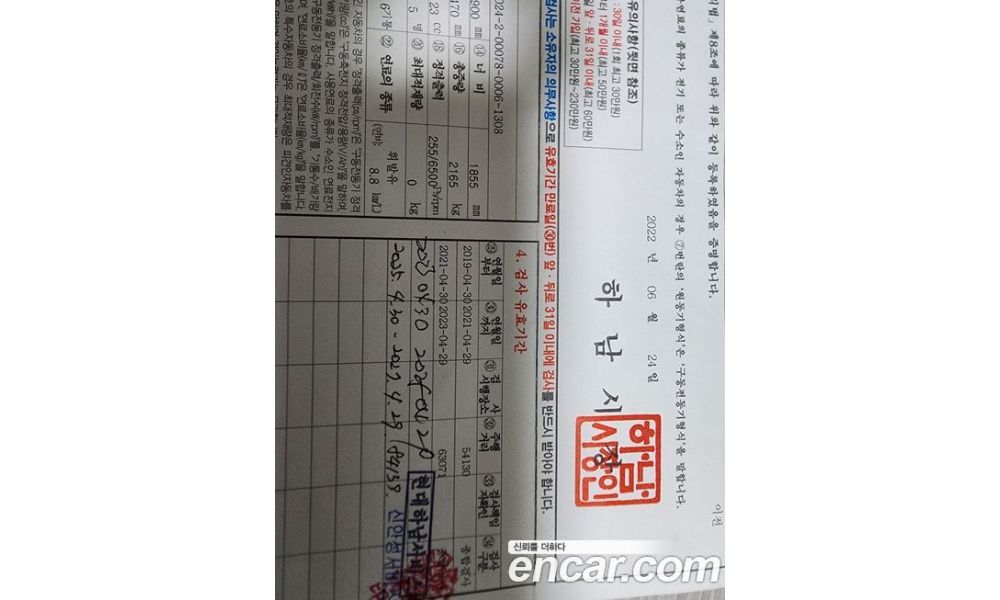 이전
법」 제8조에 따라 위와 같이 등록하였음을 증명합니다.
연료의 종류가 전기 또는 수소인 자동차의 경우 ⑦번란의 '원동기형식'은 '구동전동기형식'을 말합니다.
2022 년 06 월 24 일
하 남 시 장
하남
시장인
유의사항(뒷면 참조)
: 30일 이내(1회 최고 30만원)
부터 1개월 이내(최고 50만원)
일 앞 · 뒤로 31일 이내(최고 60만원)
이전 가입(최고 30만원~230만원)
검사는 소유자의 의무사항으로 유효기간 만료일(㉚번) 앞 · 뒤로 31일 이내에 검사를 반드시 받아야 합니다.
024-2-00078-0006-1308
900 mm ⑭ 너 비 1855 mm
470 mm ⑯ 총중량 2165 kg
23 cc ⑱ 정격출력 255/6500 ps/rpm
5 명 ⑳ 최대적재량 0 kg
6기통 ㉒ 연료의 종류 휘발유
(연비: 8.8 km/L)
4. 검사 유효기간
㉙ 연월일 부터
㉚ 연월일 까지
㉛ 검 사 시행장소
㉜ 주행 거리
㉝ 검사책임 자확인
㉞ 검사 구분
2019-04-30 2021-04-29 54130 종합검사
2021-04-30 2023-04-29 63071
2025. 4. 30 - 2027. 4. 29
신뢰를 더하다
encar.com